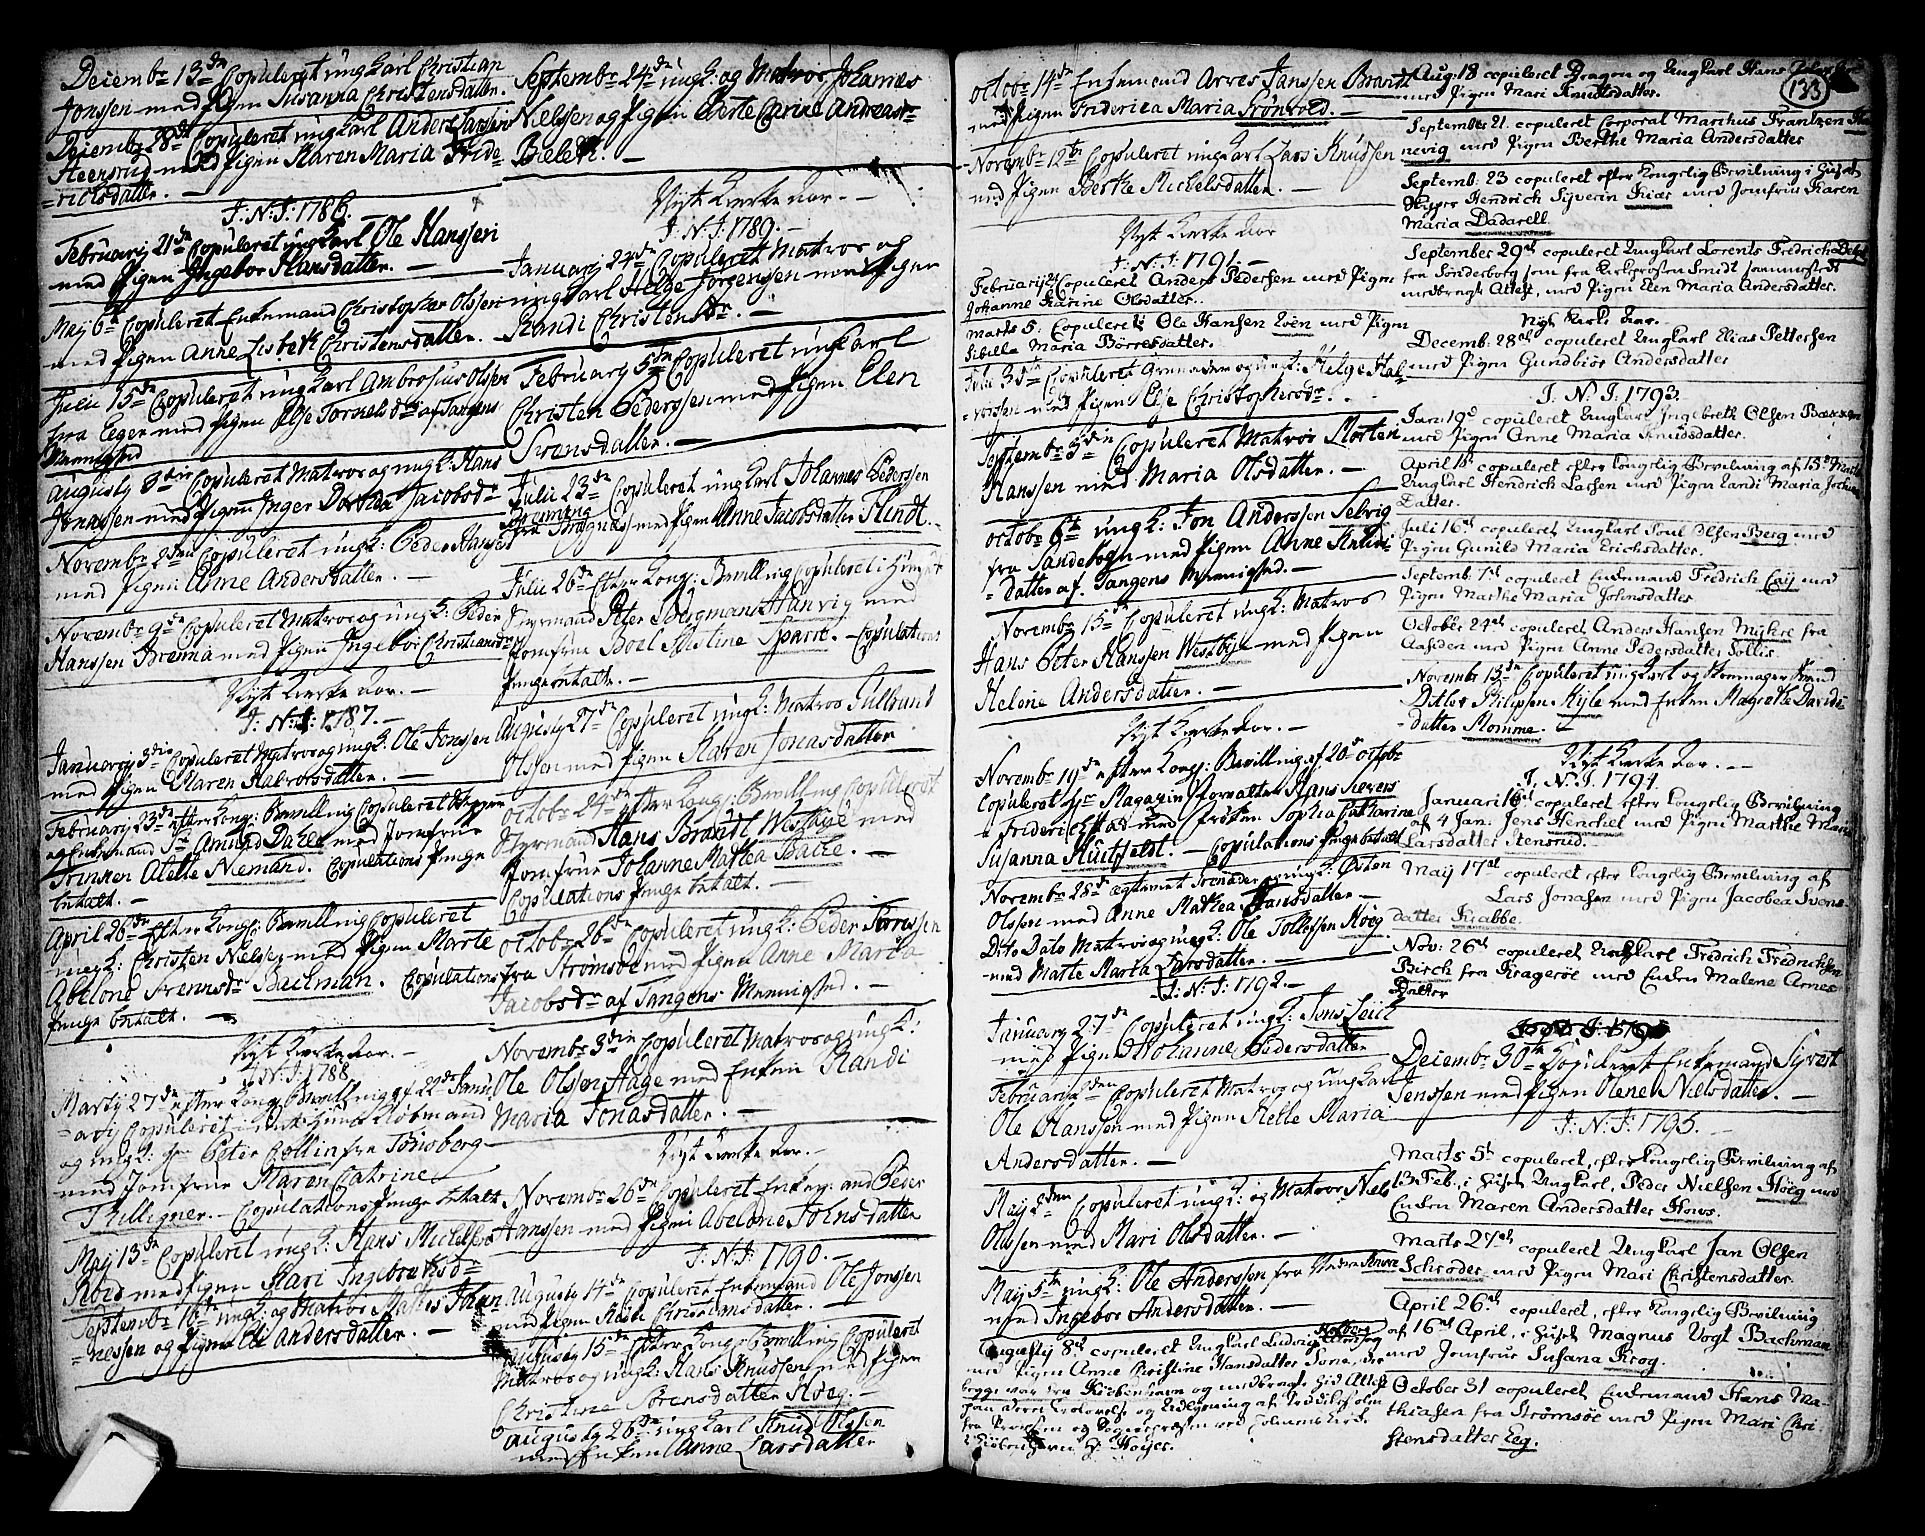 Deiembr 13de Copuleret ungkarl Christian
Jonssen med Pigen Susanna Christensdatter.
Deiembr 28de Copuleret ungkarl Anders Larssen
Heensrud med Pigen Karen Maria Fride=
=richsdatter. —
J: N: J: 1786.
Februarij 21de Copuleret ungkarl Ole Hanssen
med Pigen Ingebor Hansdatter. —
Maij 6te Copuleret Enkemand Christopher Olssen
med Pigen Anne Lisbeth Christensdatter.
Julii 15de Copuleret ungkarl Ambrosius Olssen
fra Eger med Pigen Else Torkelsdr af Tangens
Mennighed
Augustij 8de Copuleret Matros og ungk: Hans
Jonassen med Pigen Inger Dorthea Jacobsdr
Novembr 2den Copuleret ungk: Peder Hanssen
med Pigen Anne Andersdatter. —
Novembr 9de Copuleret Matros og ungk: Peder
Hanssen Brenna med Pigen Ingebor Christiansdr
Nyt Kirke Aar. —
J: N: J: 1787. —
Januarij 3die Copuleret Matros og ungk: Ole Jonssen
med Pigen Karen Halvorsdatter. —
Februarij 23de efter Kong: Bevilling Copuleret Skipper
og Enkemand Sr Amund Dahle med Jomfrue
Trinken Alette Niemand. Copulations Penge
betalt. —
April 26de efter Kong: Bevilling Copuleret
ungk: Christen Nielsen med Pigen Marte
Abelone Svennsdr Bachman. Copulations
Penge betalt. —
Nyt Kirke Aar. —
J: N: J: 1788
Martij 27de efter Kong: Bevilling af 22de Janu
=arij Copuleret i Huset Kiøbmand
og ungk: Hr Peter Collin fra Tønsberg
med Jomfrue Maren Catrine
Thilligner. — Copulations Penge betalt.
Maij 13de Copuleret ungk: Hans Michelsen
Roed med Pigen Kari Ingebretsdr
Septembr 16de ungk: og Matros Mathis Johan
=nessen og Pigen Eli Andersdatter. —
Septembr 24de ungk: og Matros Johannes
Nielssen og Pigen Berte Carine Andreasdr
Bielen. —
Nyt Kirke Aar. —
J: N: J: 1789. —
Januarij 24de Copuleret Matros og
ungkarl Helge Jørgensen med Pigen
Randi Christensdr. —
Februarij 5te Copuleret ungkarl
Christen Pederssen med Pigen Elen
Svensdatter. —
Julii 23de Copuleret ungkarl Johannes Pederssen
med Pigen Anne Jacobsdatter Flindt. —
Julii 26de Efter Kong: Bevilling Copuleret i Huset
Styrmand Peter Bergmann Hanvig med
Jomfrue Boel Kistine Sparre. — Copulations
Penge betalt. —
Augustij 27de Copuleret ungk: Matros Gulbrand
Olssen med Pigen Karen Jonasdatter
Octobr 24de efter Kong: Bevilling Copuleret
Styrmand Hans Brandt Westbye med
Jomfrue Johanne Mathea Bache. —
Copulations Penge betalt. —
Octobr 26de Copuleret ungk: Peder Torressen
fra Strømsøe med Pigen Anne Marta
Jacobsdr af Tangens Mennighed. —
Novembr 3die Copuleret Matros og ungk:
Ole Olssen Hage med Enken Randi
Maria Jonasdatter. —
Nyt Kirke Aar. —
Novembr 26de Copuleret Enkemand Peder
Hanssen med Pigen Abelone Johnsdatter
J: N: J: 1790. —
Augusti 14de Copuleret Enkemand Ole Jonssen
med Pigen Christiansdatter. —
Augustij 15de efter Kong: Bevilling Copuleret
Matros og ungk: Hans Knussen med Pigen
Christine Sørensdatter Høeg. —
Augustij 26de ungkarl Knud Olssen
med Enken Anne Larsdatter
Octobr 14de Enkemand Arves Janssen Brandt
med Pigen Frederica Maria Grønvold. —
Novembr 12te Copuleret ungkarl Lars Knussen
med Pigen Berthe Michelsdatter. —
Nyt Kirke Aar
J: N: J: 1791. —
Februarij Copuleret Anders Pedersen med Pigen
Johanne Karine Olsdatter.
Marts 5: Copuleret Ole Hansen Loen med Pigen
Sibilla Maria Børresdatter.
Copuleret Grenadeer og ungk: Helge Hal=
=vorssen med Pigen Else Christophersdr.
Septembr Copuleret Matros Morten
Hanssen med Maria Olsdatter. —
Octobr 6te ungk: Jon Anderssen Selvig
fra Sandebogn med Pigen Anne Knuds
=datter af Tangens Mennighed. —
Novembr 15de Copuleret ungk: Matros
Hans Peter Hanssen Westbye med Pigen
Helene Andersdatter. —
Nyt Kirke Aar. —
Novembr 19de efter Kong: Bevilling af 20de Octobr
Copuleret Hr Magazin Forvalter Hans Sievers
i Friderichstad med Frøken Sophia Catharina
Susanna Huitfeldt. — Copulations Penge betalt
Novembr 25de ægteviet Grenadeer ungk: Østen
Olssen med Anne Mathea Hansdatter. —
Dito Dato Matros og ungk: Ole Tollefssen Høeg
med Marte Marta Larsdatter. —
J: N: J: 1792. —
Januarij 27de Copuleret ungk: Jens
med Pigen Johanne Pedersdatter
Februarij Copuleret Matros og ungkarl
Ole Hanssen med Pigen Helle Maria
Andersdatter. —
Maij 2den Copuleret ungk: og Matros Niels
Olssen med Mari Olsdatter. —
Maij 5te ungk: Ole Anderssen fra
med Ingebor Andersdatter. —
Augustij 8de copuleret Ungkarl Ludvig
med Pigen Anne Christine Hansdatter
begge var fra Kiøbenhavn og medbragte
Aug: 18 copuleret Dragon og Ungkarl Hans
med Pigen Mari Knudsdatter.
133
September 21. copuleret Corporal Marthus Frantzen
nevig med Pigen Berthe Maria Andersdatter
Septemb: 23 copuleret efter Kongelig Bevilning i Huset
Skipper Hendrich Syverin Kiær med Jomfrue Karen
Maria Dadarell
September 29de copuleret Ungkarl Lorents Fredrich
fra Sønderborg som fra Kirkeprosten Smidt sammesteds
medbragte Attest, med Pigen Elen Maria Andersdatter.
Nyt Kirke Aar.
Decemb. 28de copuleret Ungkarl Elias Pettersen
med Pigen Gundbiør Andersdatter
J. N. J: 1793.
Jan: 19de copuleret Ungkarl Ingebreth Olsen
med Pigen Anne Maria Knudsdatter.
April copuleret efter Kongelig Bevilning af 15de Martii
Ungkarl Hendrich Larsen med Pigen Randi Maria Jochums
Datter.
Juli 16de copuleret Ungkarl Poul Olsen Berg med
Pigen Gunild Maria Erichsdatter.
Septemb. 7de copuleret Enkemand Fredrich Caij med
Pigen Marthe Maria Johnsdatter
October 24de copuleret Anders Hansen Myhre fra
Aasiden med Pigen Anne Pedersdatter Sollie.
Novembr 13de Copuleret ungkarl og Skomager Svend
Ditlev Philipsen Kyle med Enken Magrethe Davids
=datter Momme. —
Nyt Kirke Aar. —
J. N. J. 1794.
Januari 16de copuleret efter Kongelig Bevilning
af 4 Jan. Jens Henchel med Pigen Marthe Maria
Larsdatter Stensrud.
Maij 17de copuleret efter Kongelig Bevilning af
Lars Jonasen med Pigen Jacobea Svens
datter Krabbe.
Nov: 26de copuleret Ungkarl Fredrich Fredrichsen
Birch fra Kragerøe med Enken Malene Arnes
Datter
Deiembr 30te Copuleret Enkemand Syvert
Jenssen med Pigen Olene Nielsdatter. —
J: N: J: 1795. —
Marts 5te copuleret, efter Kongelig Bevilning af
13 Feb., i Huset Ungkarl, Peder Nielsen Høeg med
Enken Maren Andersdatter Hows.
Marts 27de copuleret Ungkarl Jan Olsen
Schrøder med Pigen Mari Christensdatter
April 26de copuleret, efter Kongelig Bevilning
af 16de April, i Huset Magnus Vogt Bachman
med Jomfrue Susana Krog.
October 31 copuleret Enkemand Hans Ma-
thiasen fra Strømsøe med Pigen Mari Chri-
stensdatter Eeg.